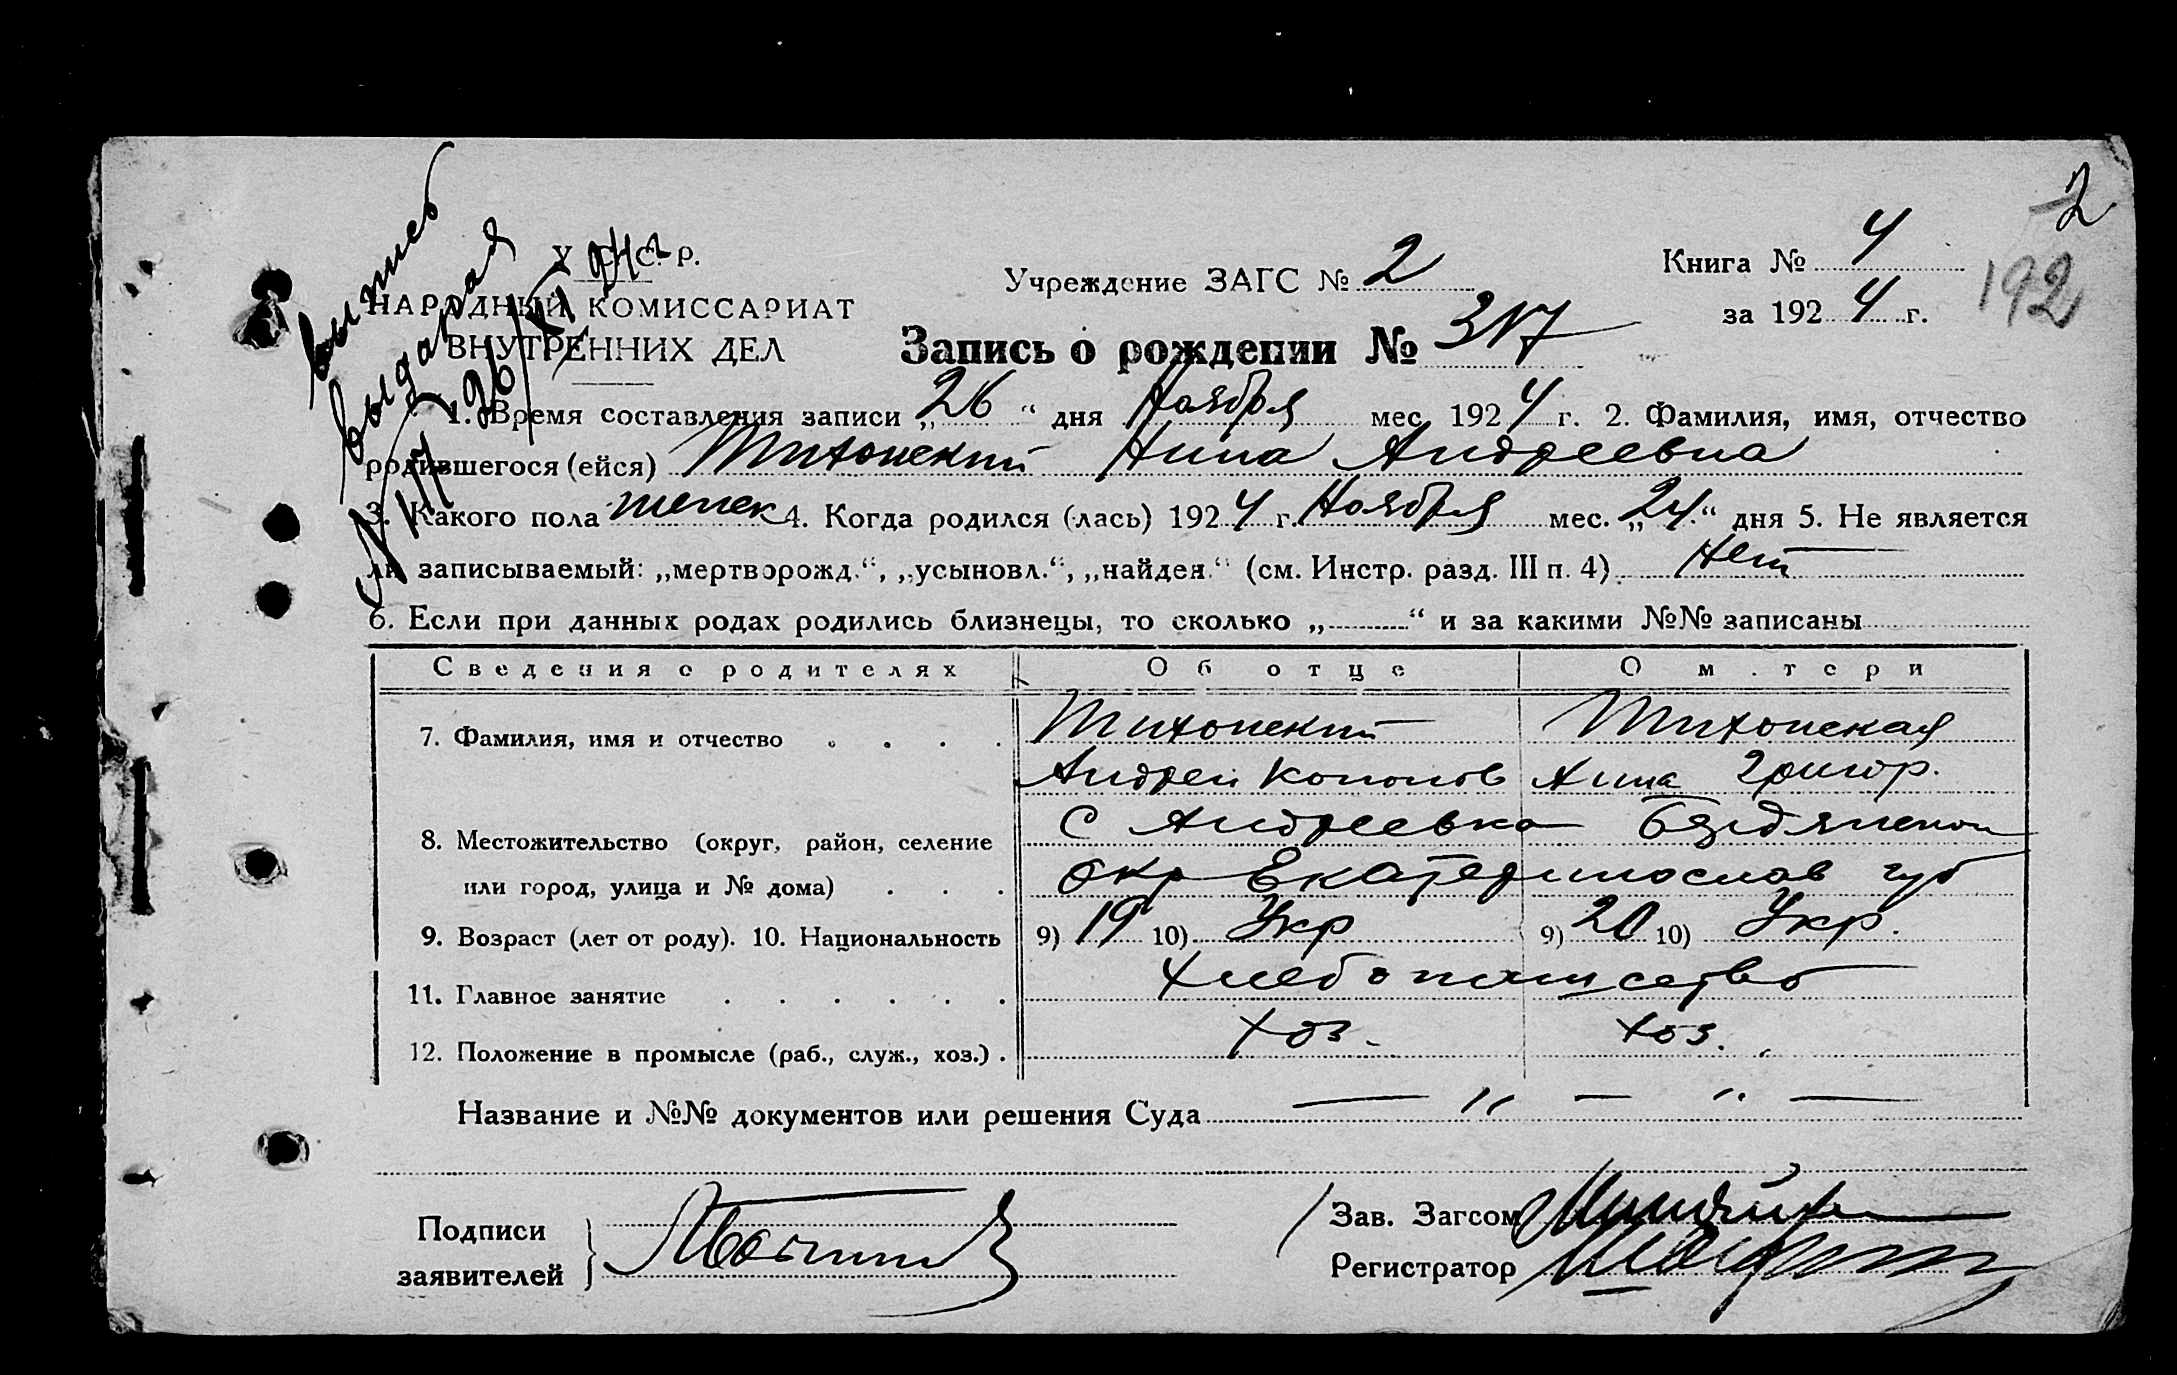 2
192
выпись
выданая
26/VI 94 г
У. С. С. Р.
НАРОДНЫЙ КОМИССАРИАТ
ВНУТРЕННИХ ДЕЛ
Учреждение ЗАГС № 2
Книга № 4
за 1924 г.
Запись о рождении № 317
1. Время составления записи „26“ дня Ноября мес. 1924 г. 2. Фамилия, имя, отчество
родившегося (ейся) Тихонский Нина Андреевна
3. Какого пола женск 4. Когда родился (лась) 1924 г. Ноября мес. „24.“ дня 5. Не является
ли записываемый: „мертворожд.“, „усыновл.“, „найден.“ (см. Инстр. разд. III п. 4) Нет
6. Если при данных родах родились близнецы, то сколько „..........“ и за какими №№ записаны
Сведения о родителях Об отце О м.тери
7. Фамилия, имя и отчество Тихонский Тихонская
Андрей Кононов Анна Григор.
8. Местожительство (округ, район, селение С Андреевка Бердянской
или город, улица и № дома) окр Екатеринослав губ
9. Возраст (лет от роду). 10. Национальность 9) 19 10) Укр 9) 20 10) Укр.
11. Главное занятие Хлебопашество
12. Положение в промысле (раб., служ., хоз.) хоз. хоз.
Название и №№ документов или решения Суда — „ — „ —
Подписи
заявителей
Зав. Загсом
Регистратор